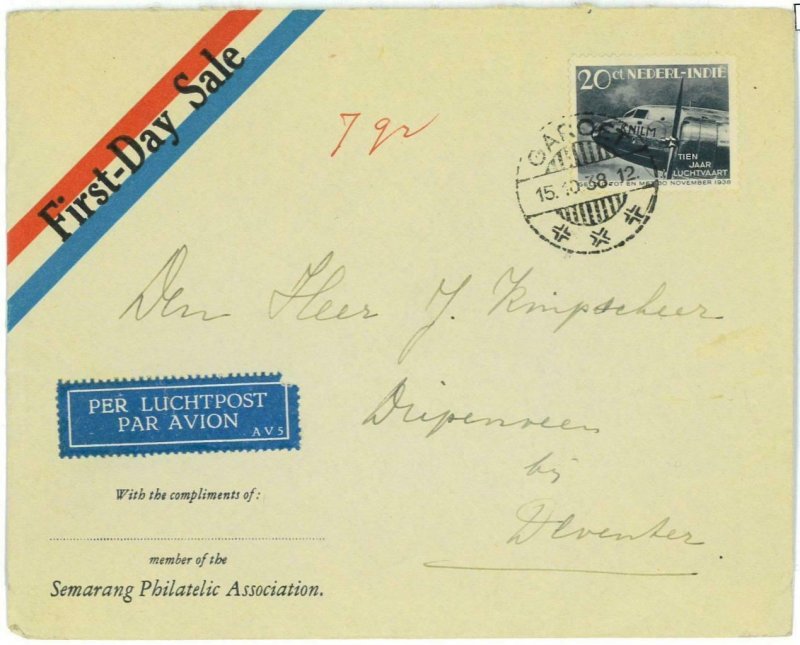 First-Day Sale
7 gr
20 ct NEDERL-INDIË
KNILM
TIEN
JAAR
LUCHTVAART
TOT EN MET 30 NOVEMBER 1938
GAROET
15.10.38.12
Den Heer J. Kimpscheer
Diepenveen
bij
Deventer
PER LUCHTPOST
PAR AVION
AV5
With the compliments of:
member of the
Semarang Philatelic Association.